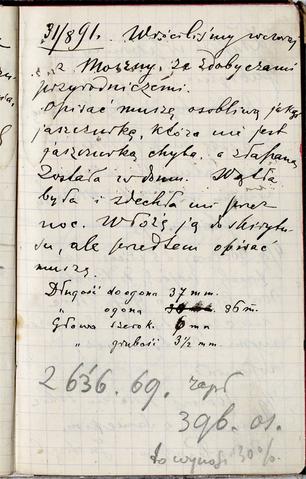 31/8 91. Wróciliśmy wczoraj
z Moszny, ze zdobyczami
przyrodniczemi.
Opisać muszę osobliwą jakąś
jaszczurkę, która nie jest
jaszczurką chyba, a złapaną
została w domu. Wątła
była i zdechła mi przez
noc. Włożę ją do skrytu-
su, ale przedtem opisać
muszę.
Długość do ogona 37 mm.
" ogona 36 m.
Głowa szerok. 6 mm
" grubość 3½ mm.
2636.69.
396. os.
to wynosi 30%.